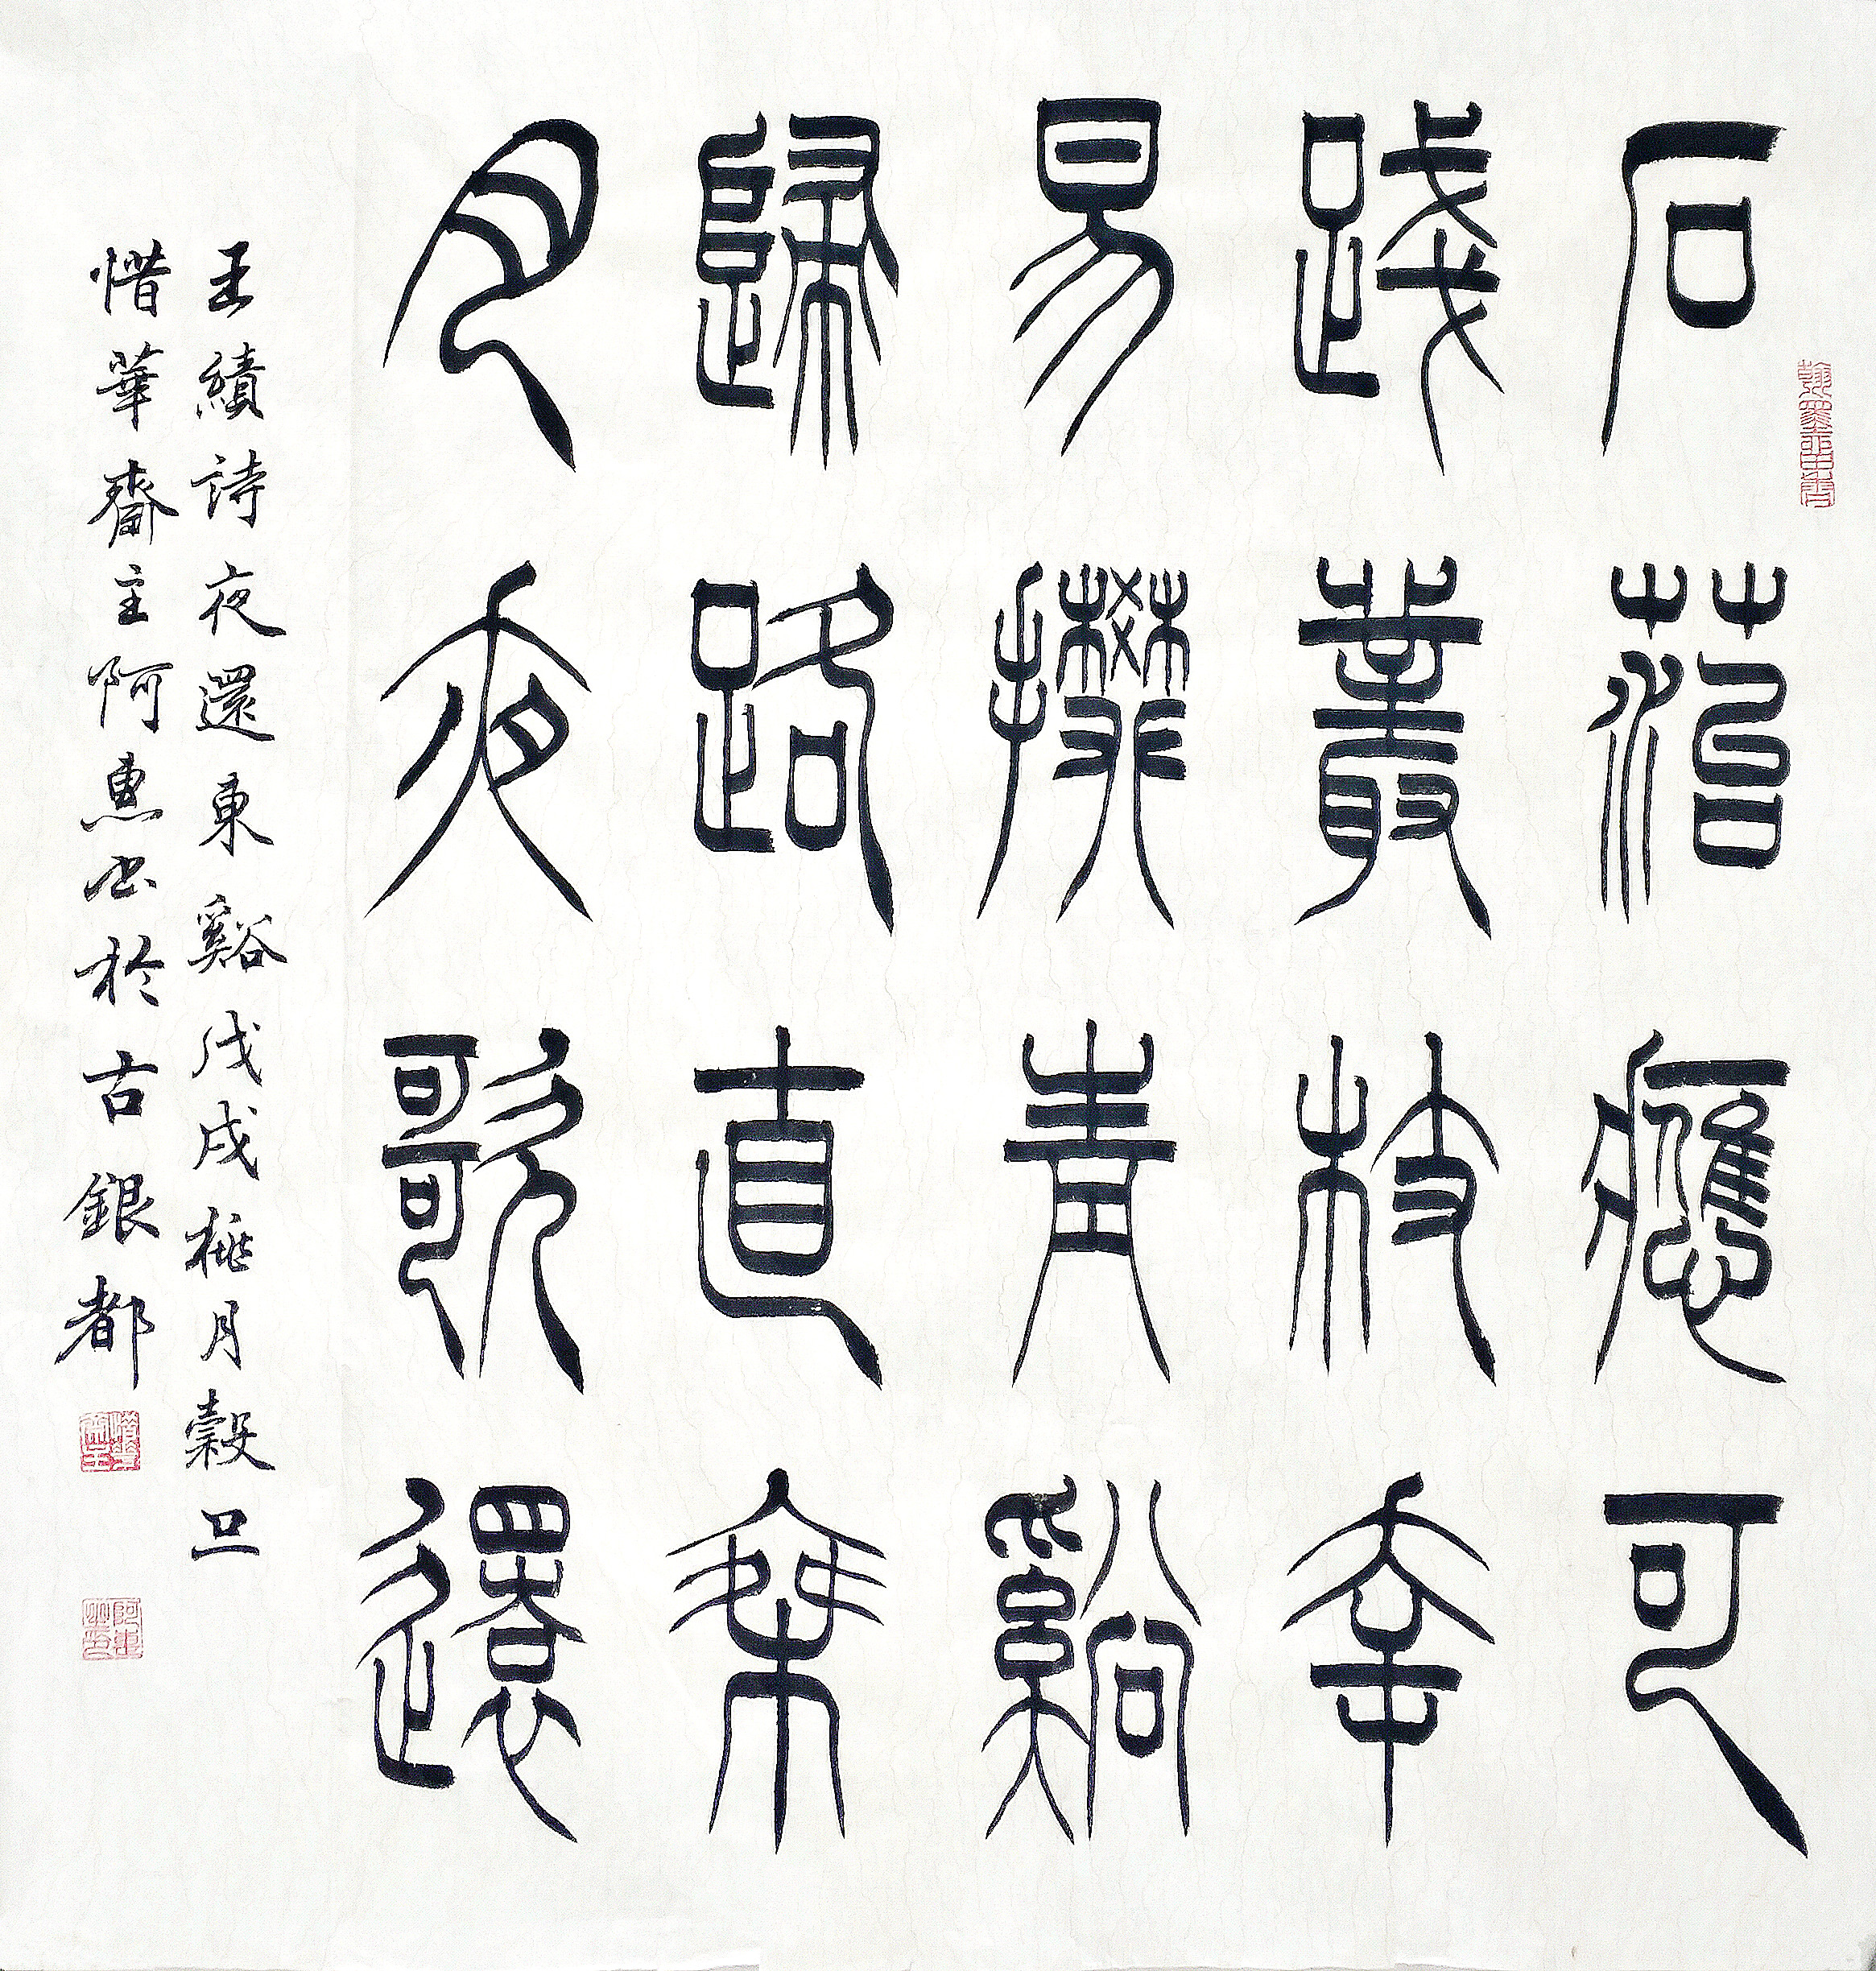 石菭應可
踐叢枝幸
易攀青谿
歸路直椉
月夜歌還
王績詩夜還東谿戊戌桃月穀旦
惜華齋主阿惠书於古銀都
惜華齋主